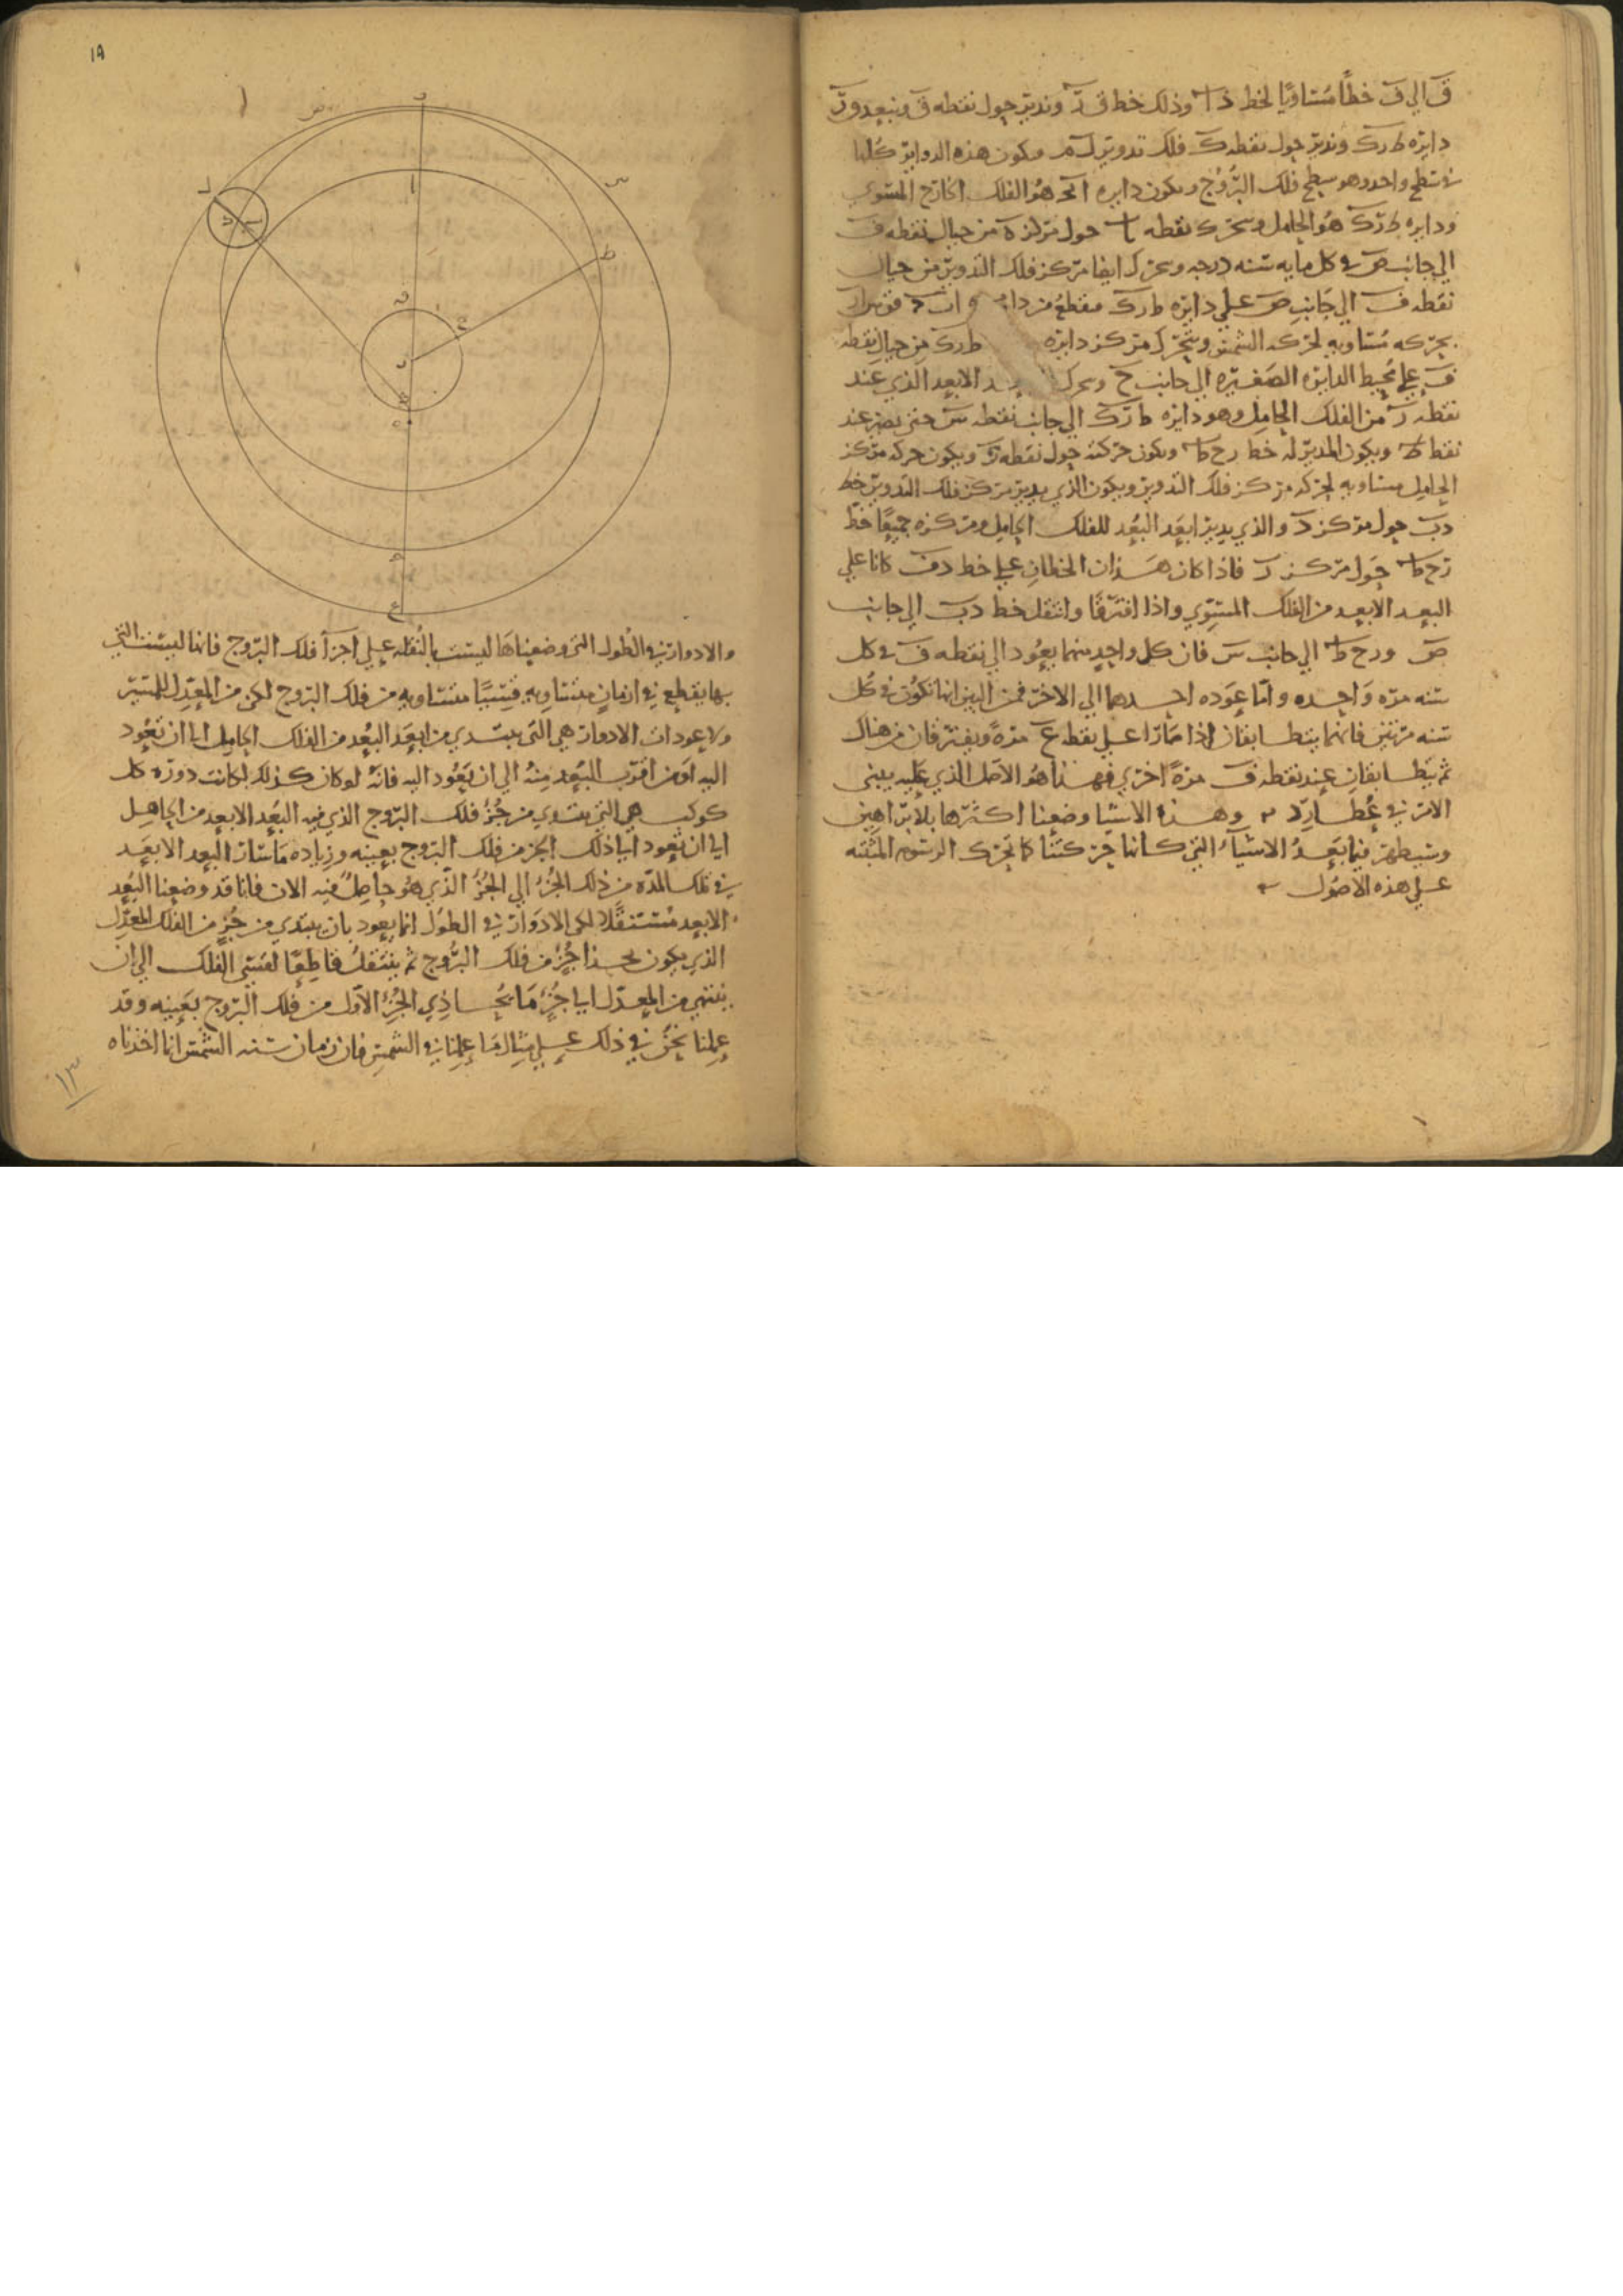 ق الي ف خطًا مُساويًا لخط دا وذلك خط ق ر وندير حول نقطه ق وببعد ق ر
دايره ط ر ك وندير حول نقطه ك فلك تدوير ل م ويكون هذه الدواير كُلها
في سطح واحد وهو سطح فلك البُرُوج ويكون دايره هُو الفلك الخارج المستوي
ودايره ط ر ك هُو الحامل وتتحرك نقطه حول مركز ه من حيال نقطه ف
الي جانب ص في كل مايه سنه درجه ويتحرك ايضا مركز فلك التدوير من حيال
نقطه ف الي جانب ص علي دايره ط ر ك
بحركه مُساويه لحركه الشمس ويتحرك مركز دايره ط ر ك من حيال نقطه
ف علي مُحيط الدايره الصغيره الي جانب ح الابعد الذي عند
نقطه ر من الفلك الحامل وهو دايره ط ر ك الي جانب نقطه س حتي يصير عند
نقطه ط ويكون المدير له خط ر ح ط ويكون حركته حول نقطه ر ويكون حركه مركز
الحامل مساويه لحركه مركز فلك التدوير ويكون الذي يدير مركز فلك التدوير خط
د ب حول مركز د والذي يدير ابعَد البُعُد للفلك الحامل ومركزه جميعًا خط
ر ح ط حَول مركز ر فاذا كان هَذان الخطان علي خط د ف كانا علي
البعد الابعد من الفلك المستوي واذا افترقا وانتقل خط د ب الي جانب
ص و ر ح ط الي جانب س فان كل واحدٍ منهما يعُود الي نقطه ف في كل
سنه مره وَاحده وامّا عَوده احدهما الي الاخر فمن البين انها تكُون في كُل
سنه مرتين فانهما يتطابقان اذا صَارا علي نقطه ع مرةً ويفترقان من هناك
ثم يتطابقان عند نقطه ف مرةً اخري فهذا هُو الاصل الذي عليه يبني
الامر في عُطارد وهذه الاشيا وضعنا اكثرها بلا براهين
وسيظهر فيما بَعدُ الاشيآء التي كاننا حركتنا كما تحرك الرسُوم المثبته
علي هذه الاصُول
١٨
والادوار في الطُول التي وضعناها ليست بالنُقله علي اجزآ فلك البرُوج فانها ليست التي
بها يقطع في ازمانٍ متساويه قسيًا متساويه من فلك البروج لكن من المعدّل للمسير
ولا عودات الادوار هي التي يبتدي من ابعَد البُعد من الفلك الحامل الي ان تعُود
اليه اومن اقرب البُعد منهُ الي ان يَعُود اليه فانّهُ لو كان كذلك لكانت دورة كل
كوكب هي التي يبتدي من جُزءِ فلك البرّوج الذي فيه البُعد الابعد من الحامل
الي ان تعُود الي ذلك الجز من فلك البرُوج بعينه وزياده مَا سَار البعد الابعَد
في تلك المدّه من ذلك الجُزء الي الجُزء الذي هُو حاصِلٌ فيه الان فانا قد وضعنا البُعد
الابعد مُستنقلًا لكن الادوَار في الطول انما يعود بان يبتدي من جُزءٍ من الفلك المعدّل
الذي يكون بحذا جُزءٍ من فلك البرُوج ثم ينتقل قاطِعًا لقسي الفلك الي ان
ينتهي من المعدّل الي جُزءٍ مَا يُحاذي الجُزء الاَول من فلك البرّوج بعينه وقد
عملنا نحنُ في ذلك علي مثال مَا عملنا في الشمس فان زمان سنه الشمس انما اخذناه
١٣